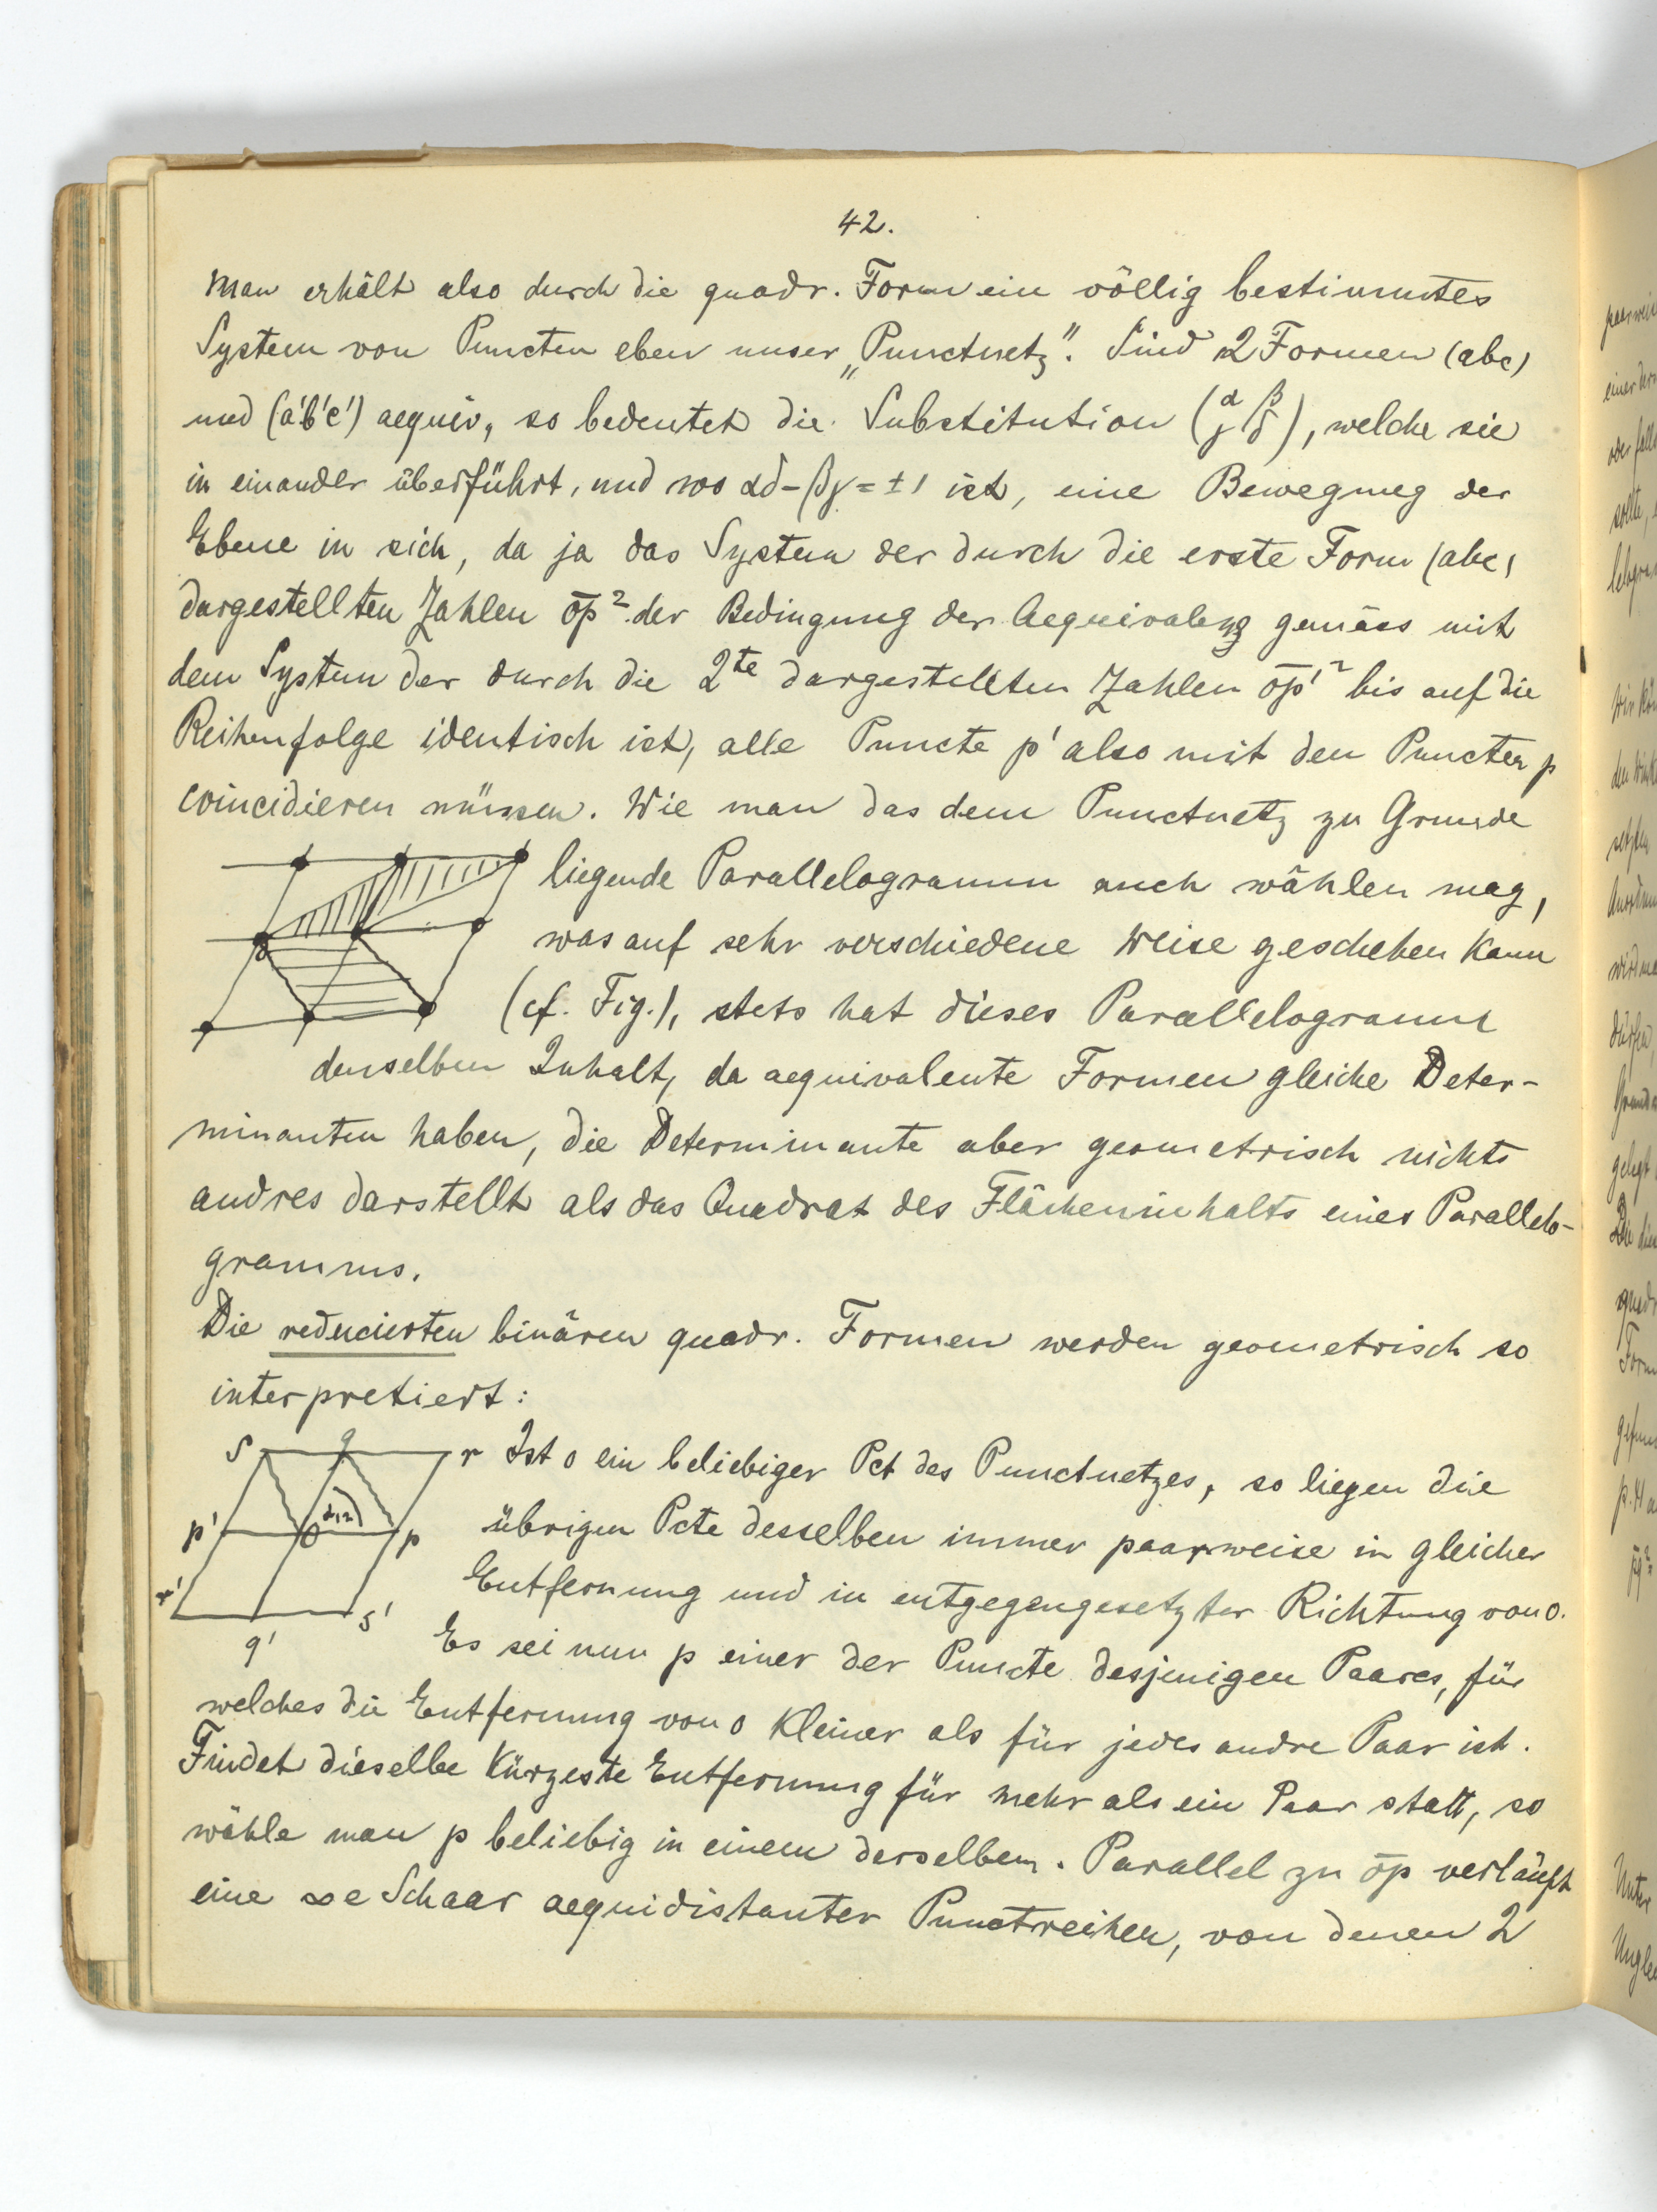 42.
Man erhält also durch die quadr. Form ein völlig bestimmtes
System von Puncten eben unser „Punctnetz". Sind 2 Formen (abc)
und (a'b'c') aequiv, so bedeutet die Substitution (α β γ δ), welche sie
in einander überführt, und wo αδ-βγ=±1 ist, eine Bewegung der
Ebene in sich, da ja das System der durch die erste Form (abc)
dargestellten Zahlen op² der Bedingung der Aequivalenz gemäss mit
dem System der durch die 2te dargestellten Zahlen op'² bis auf die
Reihenfolge identisch ist, alle Puncte p' also mit den Puncten p
coincidieren müssen. Wie man das dem Punctnetz zu Grunde
liegende Parallelogramm auch wählen mag,
was auf sehr verschiedene Weise geschehen kann
(cf. Fig.), stets hat dieses Parallelogramm
denselben Inhalt, da aequivalente Formen gleiche Deter-
minanten haben, die Determinante aber geometrisch nichts
andres darstellt als das Quadrat des Flächeninhalts eines Parallelo-
gramms.
Die reducierten binären quadr. Formen werden geometrisch so
interpretiert:
s q r Ist o ein beliebiger Pct des Punctnetzes, so liegen die
p' o α12 p übrigen Pcte desselben immer paarweise in gleicher
r' s' Entfernung und in entgegengesetzter Richtung von o.
q' Es sei nun p einer der Puncte desjenigen Paares, für
welches die Entfernung von o kleiner als für jedes andre Paar ist.
Findet dieselbe kürzeste Entfernung für mehr als ein Paar statt, so
wähle man p beliebig in einem derselben. Parallel zu op verläuft
eine ∞e Schaar aequidistanter Punctreihen, von denen 2